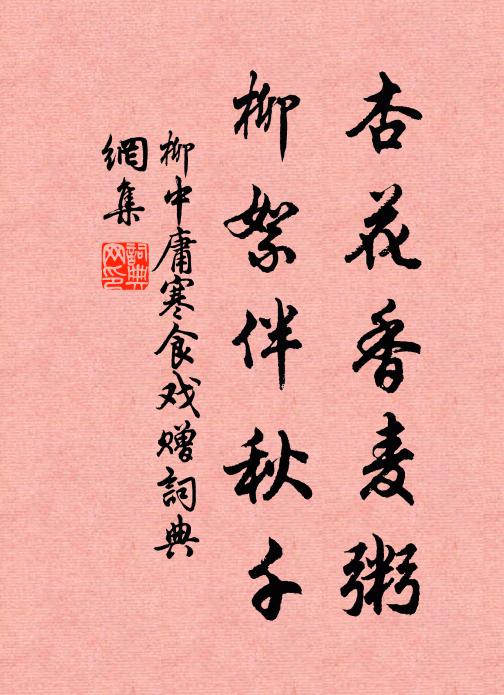 杏花香麦粥
柳絮伴秋千
柳中庸寒食戏赠詞典
網集
詞典网印